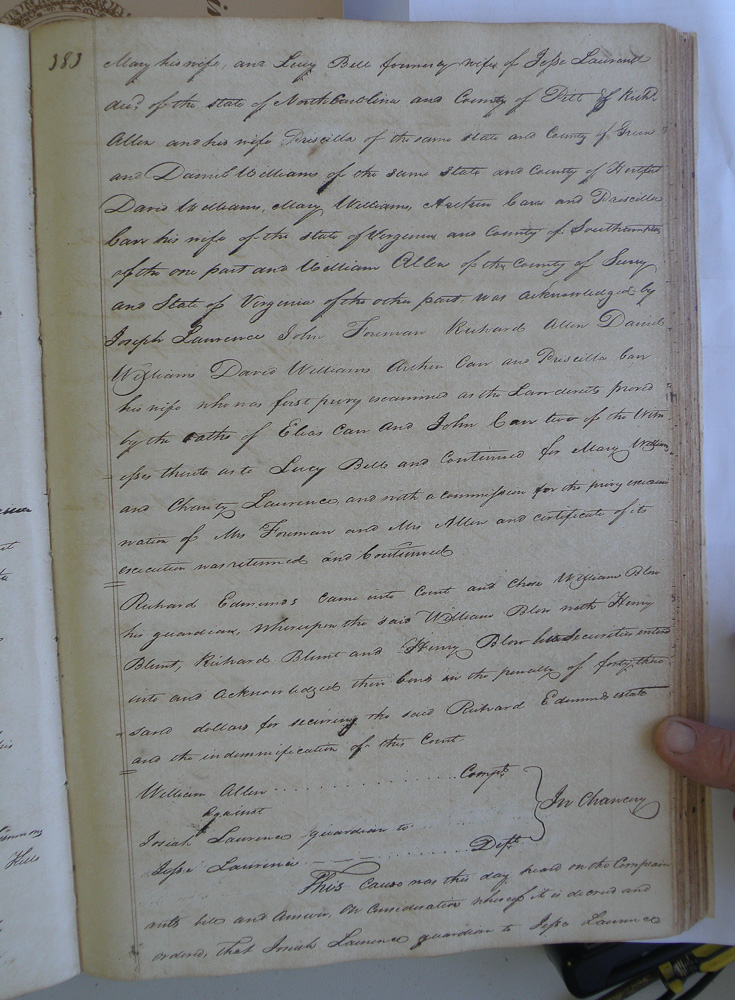 383
Mary his wife, and Lucy Bell formerly wife of Jesse Laurence
decd. of the state of North Carolina and County of Pitt & Richd.
Allen and his wife Priscilla of the same state and County of Green
and Daniel Williams of the same state and County of Hertford
David Williams, Mary Williams, Archen Carr and Priscilla
Carr his wife of the state of Virginia and County of Southampton
of the one part and William Allen of the County of Surry
and State of Virginia of the other part was acknowledged by
Joseph Laurence John Foreman Richard Allen Daniel
Williams David Williams Archen Carr and Priscilla Carr
his wife who was first privy examined as the Law directs proved
by the oaths of Elias Carr and John Carr two of the Witn
=esses thereto as to Lucy Bell and Continued for Mary Williams
and Charity Laurence, and with a commission for the privy exami
nation of Mrs Foreman and Mrs Allen and certificate of its
execution was returned and Continued
Richard Edmunds came into Court and chose William Blow
his guardian, whereupon the said William Blow with Henry
Blunt, Richard Blunt and Henry Blow his Securities entered
into and acknowledged their bond in the penalty of forty thou
=sand dollars for securing the said Richard Edmunds estate
and the indemnification of this Court
William Allen . . . . . . . . . . . . Complt.
against
In Chancery
Josiah Laurence guardian to
Jesse Laurence . . . . . . . . . . . . Deft.
This cause was this day heard on the Complain
ants bill and answer, On Consideration whereof it is decreed and
ordered, that Josiah Laurence guardian to Jesse Laurence